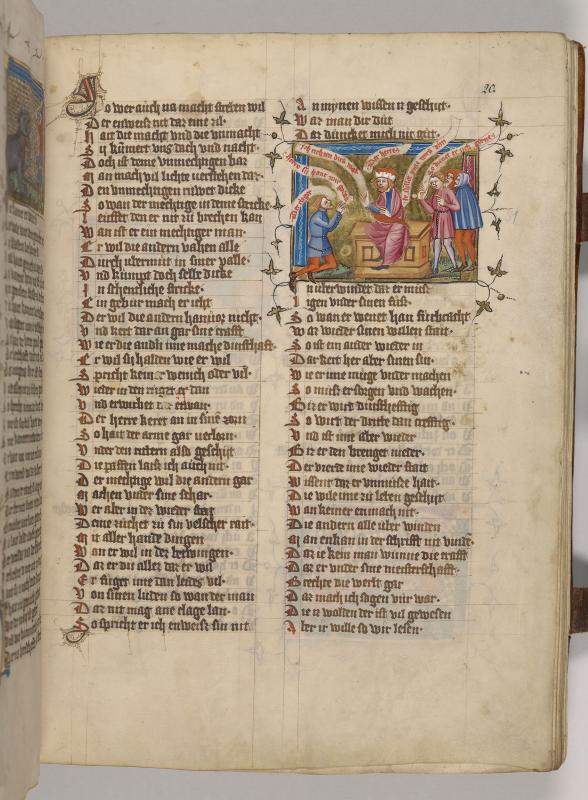 20.
So wer auch na macht streben wil
Der enweist nit daz eine zil
Hat die macht vnd die vnmacht
Si kümert vns dach vnd nacht
Doch ist deme vnmechtigen baz
Man mach vil lichte versthehen daz
Den vnmechtigen rüwet dicke
So wan der mechtige in deme stricke
den er nit zu brechen kan
Wan ist er ein mechtiger man
Er wil die andern vahen alle
Durch vbermut in siner valle
Vnd kümpt doch selbe dicke
In schentliche stricke
Ein gebur mach er icht
Der wil die andern han vor nicht
Vnd kert dar an gar sine crafft
Wie er die andern ime mache dinsthaft
Er wil si halden wie er wil
Spricht keiner wenich oder vil
Wider in den er dan
Vnd erwirbet
Der herre keret an in sine zorn
So hait der arme gar verlorn
Vnder den rittern also geschyt
Die paffen lazs ich auch nit
Der mechtige wil die andern gar
Machen vnder sine schar
Wer aber in dez wieder stat
Deme zuchet zu sin velscher rait
Mit aller hande dingen
Wan er wil in dez betwingen
Daz er du allez daz er wil
Er füget ime dan leides vil
Von sinen luden so wan der man
Daz nit mag ane clage lan
So spricht er ich enweist sin nit
An mynen wissen iz geschyt
Waz man dir düt
Daz düncket mich nit güt
Der herre
In über windet daz er müs
Ligen vnder sinen füs
So wan er wenet han sicherhcit
Waz wieder sinen willen stait
So ist ein ander wieder in
Dar kert her aber sinen sin
Wie er ime muge vnder machen
So müst er sorgen vnd wachen
Biz er wird dinsthefftig
So wirt der dritte dan crefftig
Vnd ist ime aber wieder
Biz er den brenget nieder
Der vierde ime wieder stait
Wissent daz er vnmüse hait
Die wile ime zu leben geschyt
Wan keiner en mach nit
Die andern alle über winden
Man enkan in der schrifft nit vinden
Daz ie kein man wunne die crafft
Daz er vnder sine meisterschafft
Brechte die werlt gar
Daz mach ich sagen vür war
Die iz wolden der ist vil gewesen
Aber ir wille so wir lesen